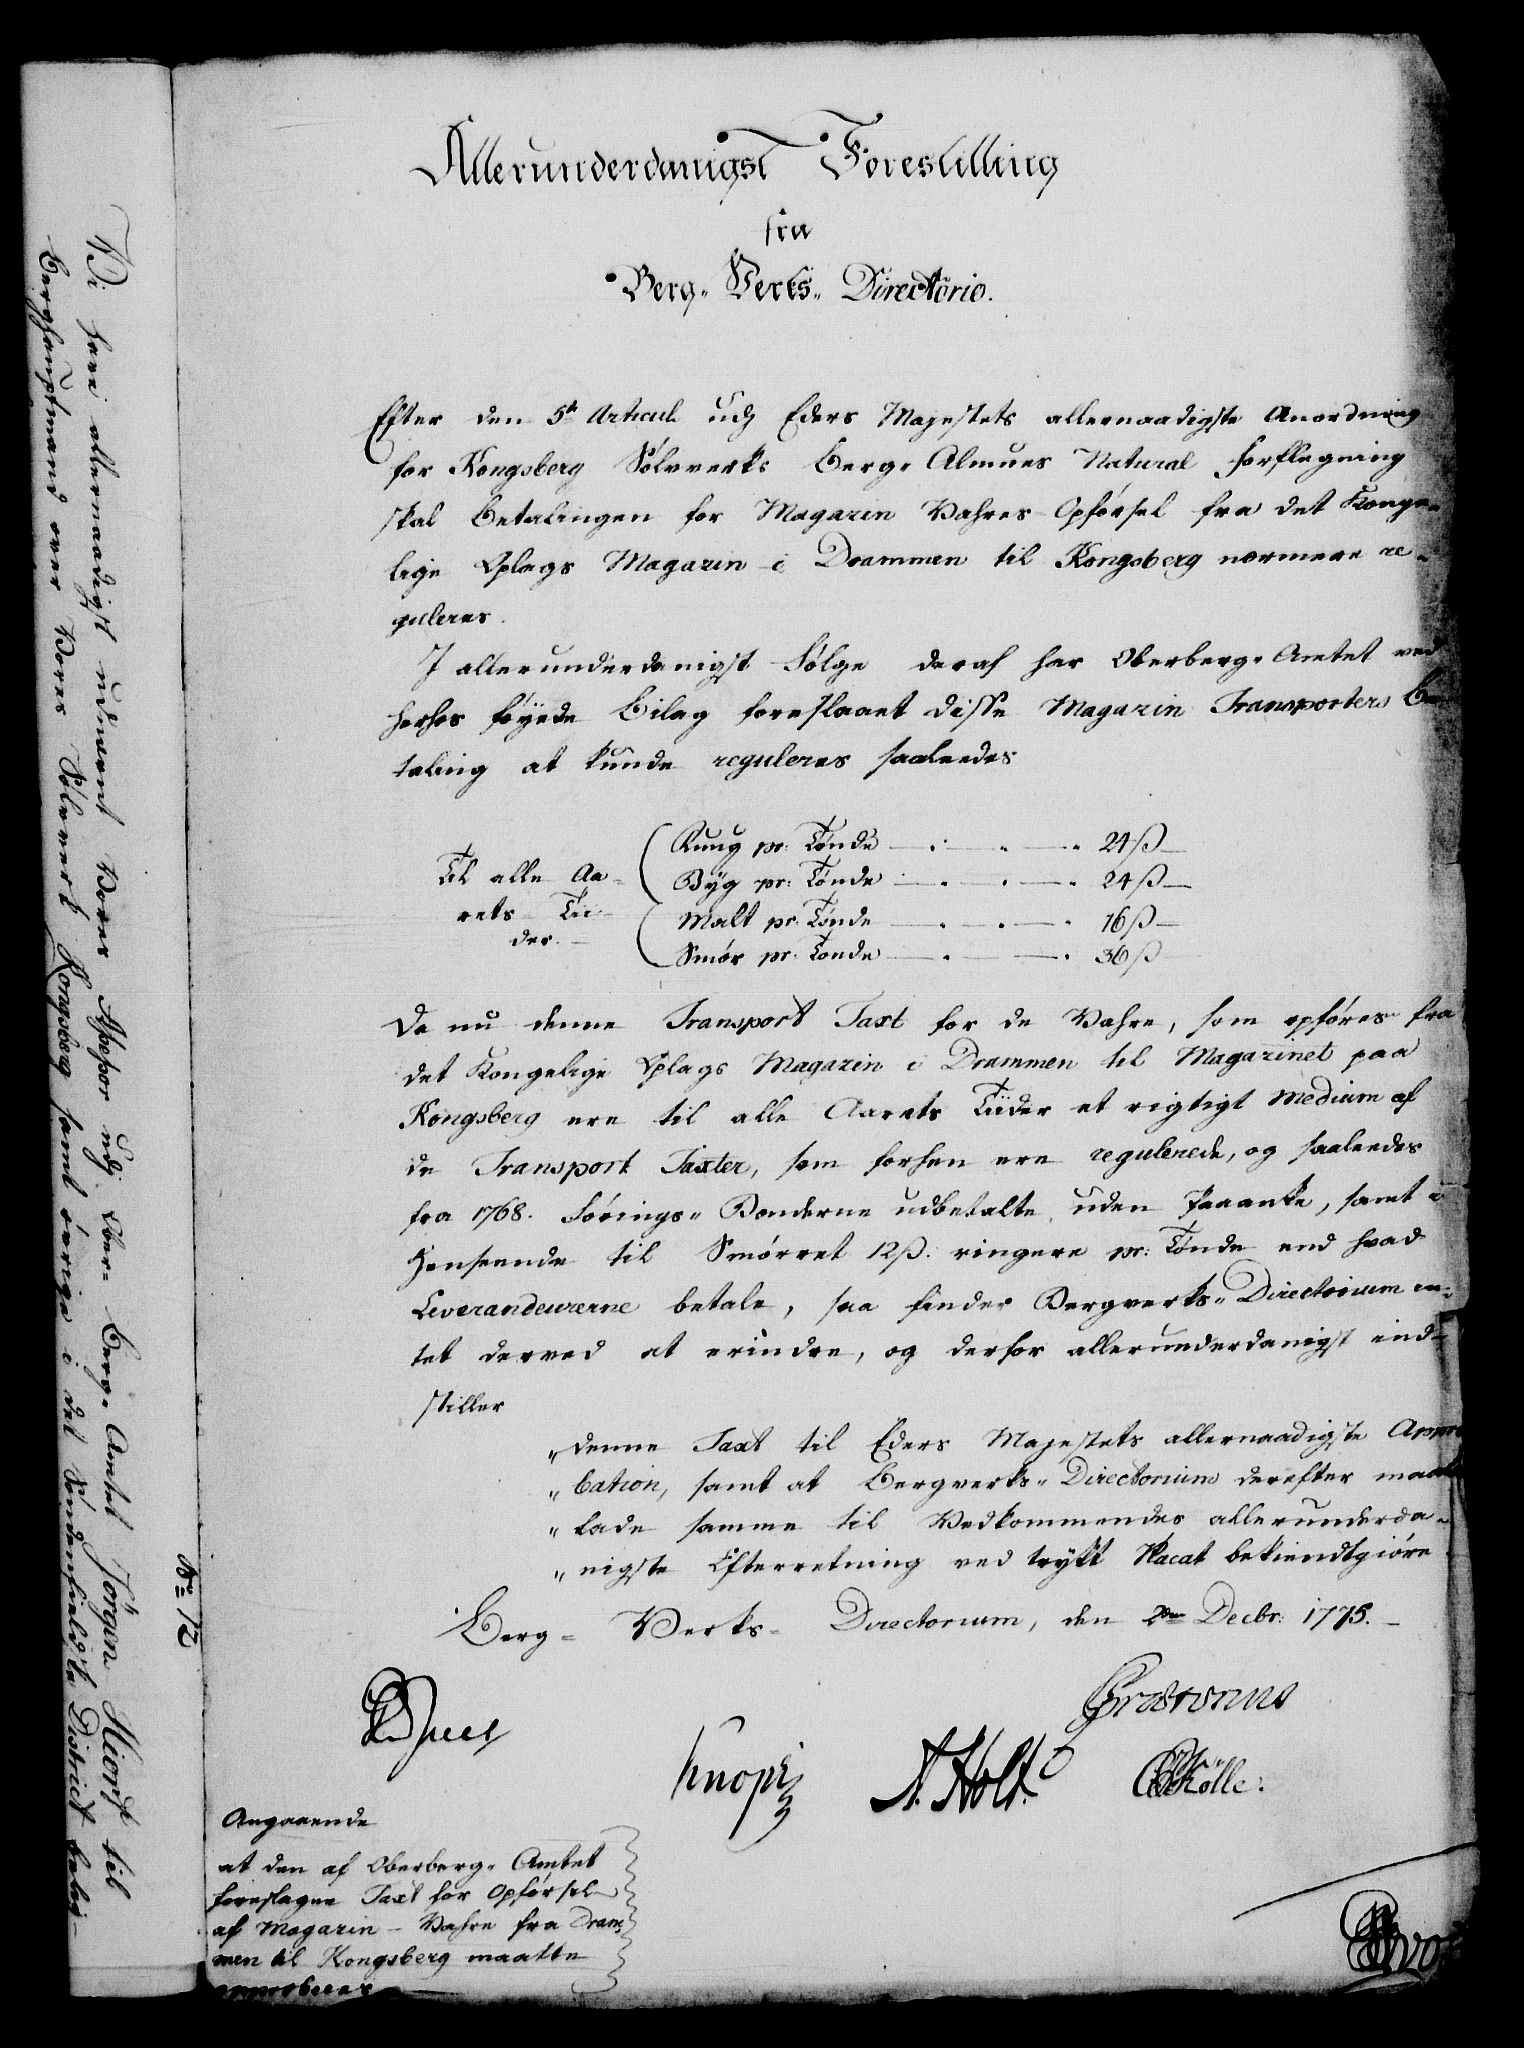 Allerunderdanigst Forestilling
fra
Berg- Verks- Directorio.
Efter den 5te Articul udj Eders Majestets allernaadigste Anordning
for Kongsberg Sölvverks Berg- Almues Natural Forflegning
skal betalingen for Magazin Vahres Opförsel fra det Konge-
lige Oplags Magazin i Drammen til Kongsberg nærmere re-
guleres.
I allerunderdanigst Fölge deraf har Oberberg- Amtet ved
herhos föyede Bilag foreslaaet disse Magazin Transporters Be-
taling at kunde reguleres saaleedes
Til alle Aa-
rets Tii-
der.
Ruug pr: Tönde 24 ß
Byg pr: Tönde 24 ß
Malt pr: Tönde 16 ß
Smör pr: Tönde 36 ß
Da nu denne Transport Taxt for de Vahre, som opföres fra
det Kongelige Oplags Magazin i Drammen til Magazinet paa
Kongsberg ere til alle Aarets Tiider et rigtigt Medium af
de Transport Taxter, som forhen ere regulerede, og saaleedes
fra 1768. Förings- Bönderne udbetalte uden Paaanke, samt i
Henseende til Smörret 12 ß. ringere pr: Tönde end hvad
Leverandeurerne betale, saa finder Bergverks- Directorium in-
tet derved at erindre, og derfor allerunderdanigst ind-
stiller
"denne Taxt til Eders Majestets allernaadigste Appro
"bation, samt at Bergverks- Directorium derefter maatte
"lade samme til Vedkommendes allerunderda-
"nigste Efterretning ved trykt Placat bekiendtgiöre.
Berg- Verks- Directorium, den 2den Decbr: 1775.
Juel
Knoph
A. Holt.
Kölle.
Angaaende
at den af Oberberg- Amtet
foreslagne Taxt for Opförsel
af Magazin- Vahre fra Dram-
men til Kongsberg maatte
approberes
No 12
Vi have allernaadigst udnævnt Vores Assessor udj Ober- Berg- Amtet Jörgen Hiort til
Berghauptmand over Vores Sölvverk Kongsberg samt övrige i det Söndenfieldske District belig-